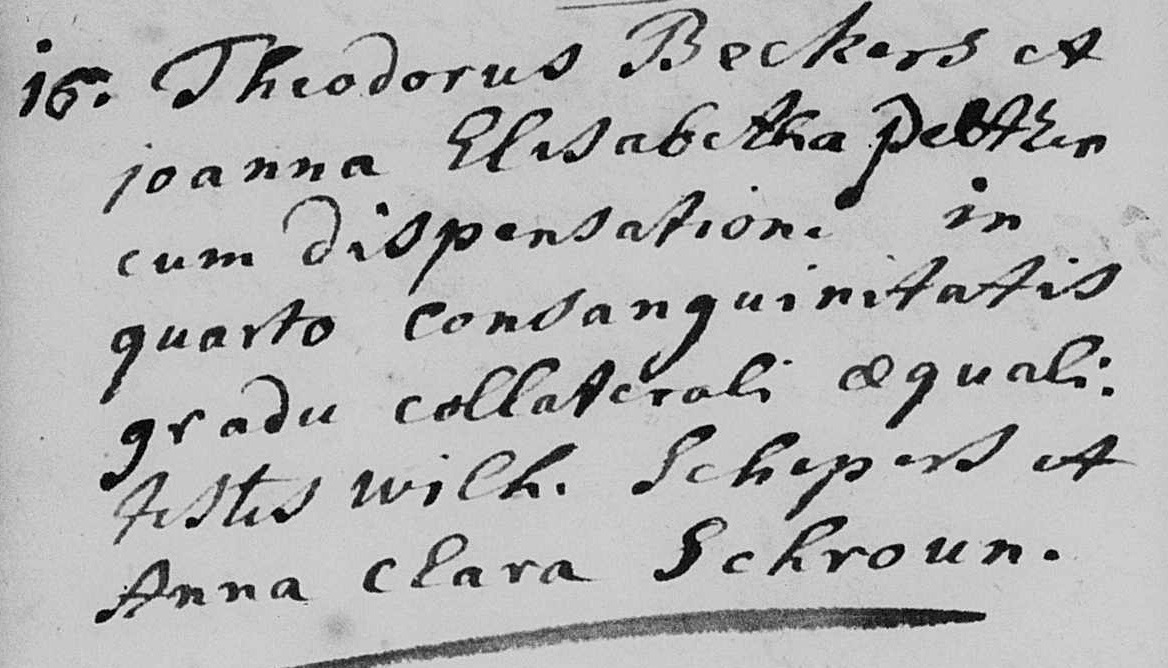 16. Theodorus Beckers et
joanna Elisabetha
cum dispensatione in
quarto consanguinitatis
gradu collaterali æquali.
testes wilh. Schepers et
Anna Clara Schroun.